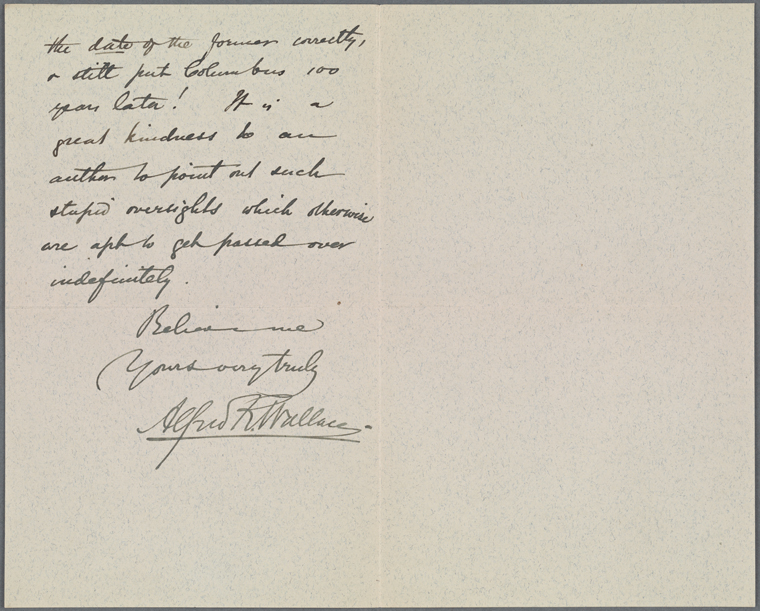 the date of the former correctly,
& still put Columbus 100
years later! It is a
great kindness to an
author to point out such
stupid oversights which otherwise
are apt to get passed over
indefinitely.
Believe me
Yours very truly
Alfred R. Wallace